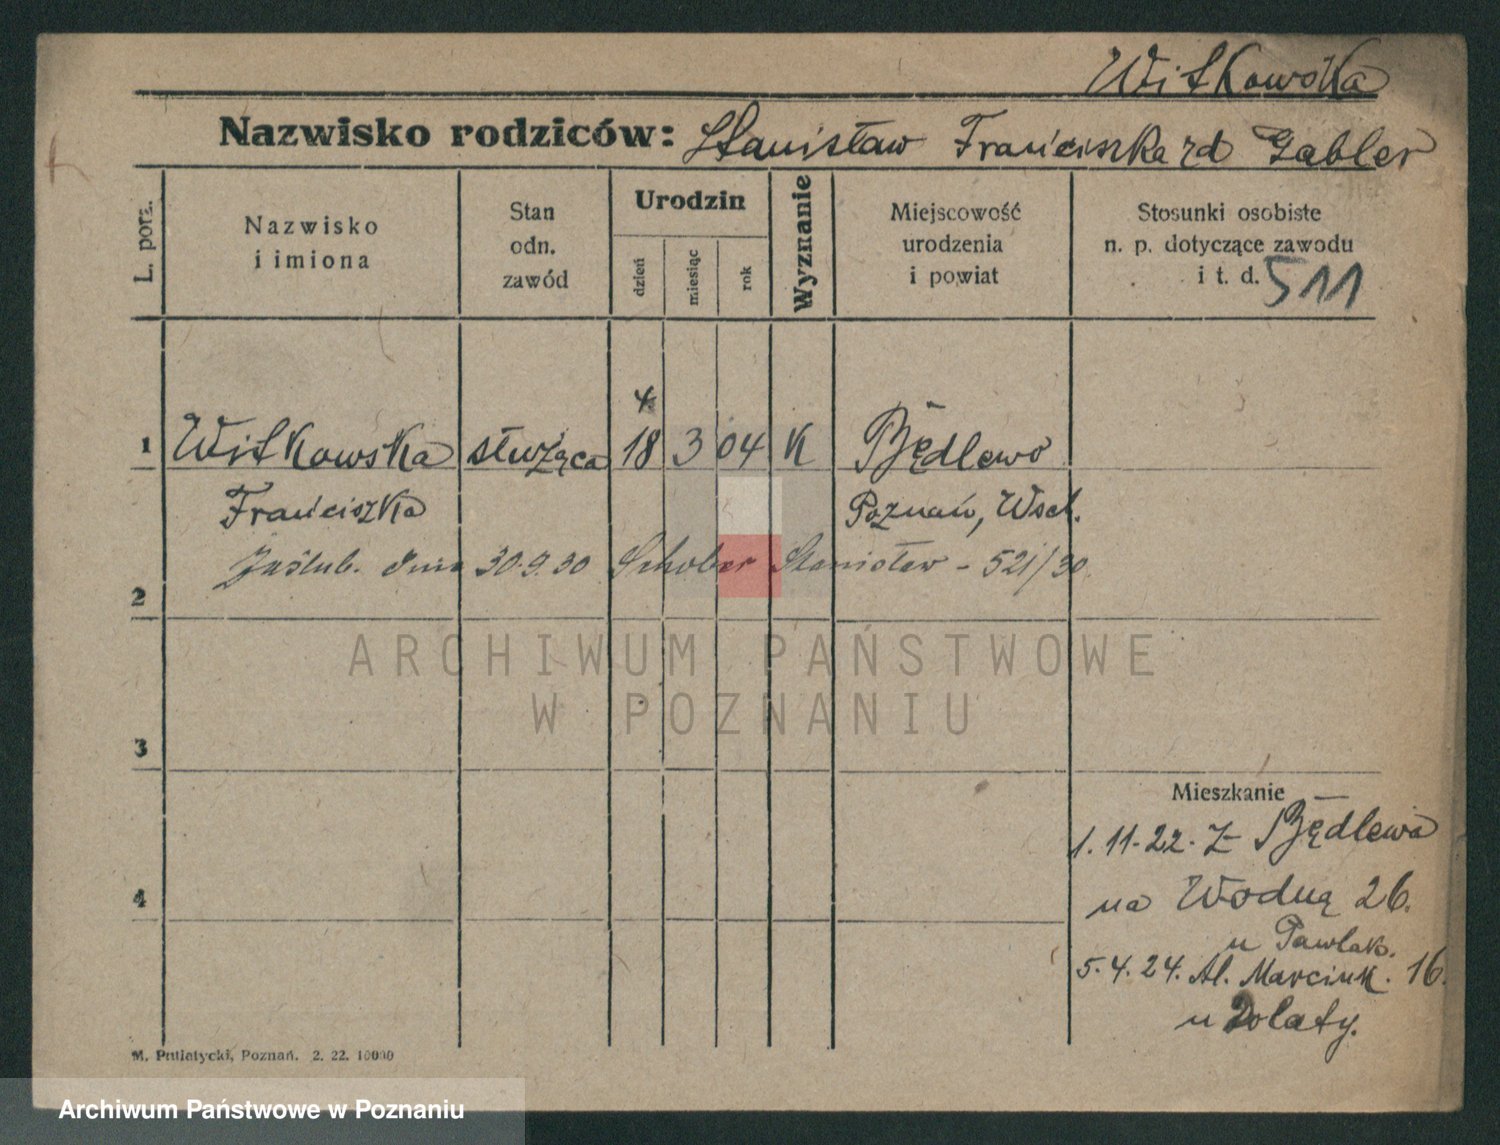 Witkowska
Nazwisko rodziców: Stanisław Franciszka rd Gabler
L. porz.
Nazwisko i imiona
Stan odn. zawód
Urodzin
dzień
miesiąc
rok
Wyznanie
Miejscowość urodzenia i powiat
Stosunki osobiste n. p. dotyczące zawodu i t. d. 511
1 Witkowska służąca 18 3 04 K Będlewo
Franciszka Poznań, Wsch.
Zaślub. dnia 30.9.30 Schober Stanisław - 521/30
2
ARCHIWUM PAŃSTWOWE
W POZNANIU
3
Mieszkanie
1.11.22. z Będlewa
4
na Wodną 26.
u Pawlak.
5.4.24. Al. Marcink. 16.
u Dolaty.
M. Putiatycki, Poznań. 2. 22. 10000
Archiwum Państwowe w Poznaniu